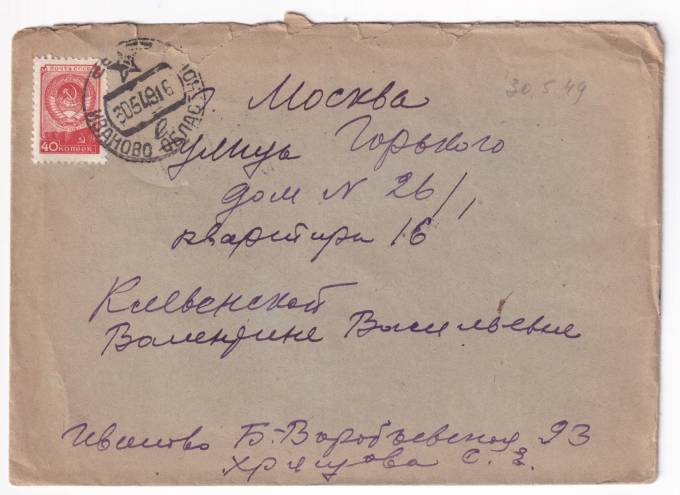 ПОЧТА СССР
40 КОПЕЕК
30 5 49 16
ИВАНОВО ОБЛАС
30.5.49
г. Москва
улица Горького
дом N 26/1
квартира 16
Клевенской
Валентине Васильевне
Иваново Б-Воробьевская 93
Хрящова С. Е.